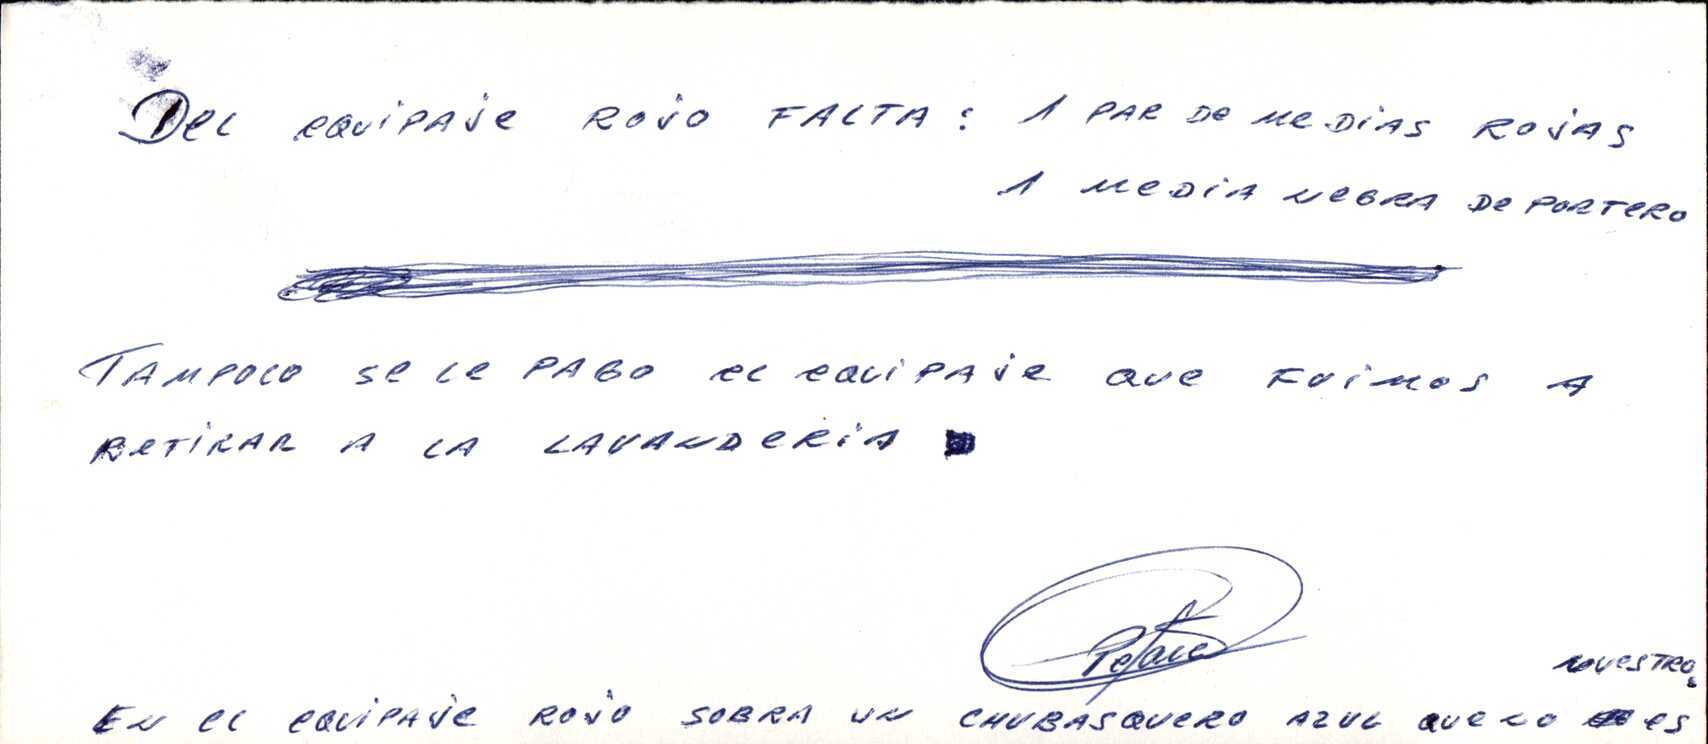 Del equipaje rojo falta: 1 par de medias rojas
1 media negra de portero
Tampoco se le pago el equipaje que fuimos a
retirar a la lavanderia
En el equipaje rojo sobra un chubasquero azul que no es
nuestro.